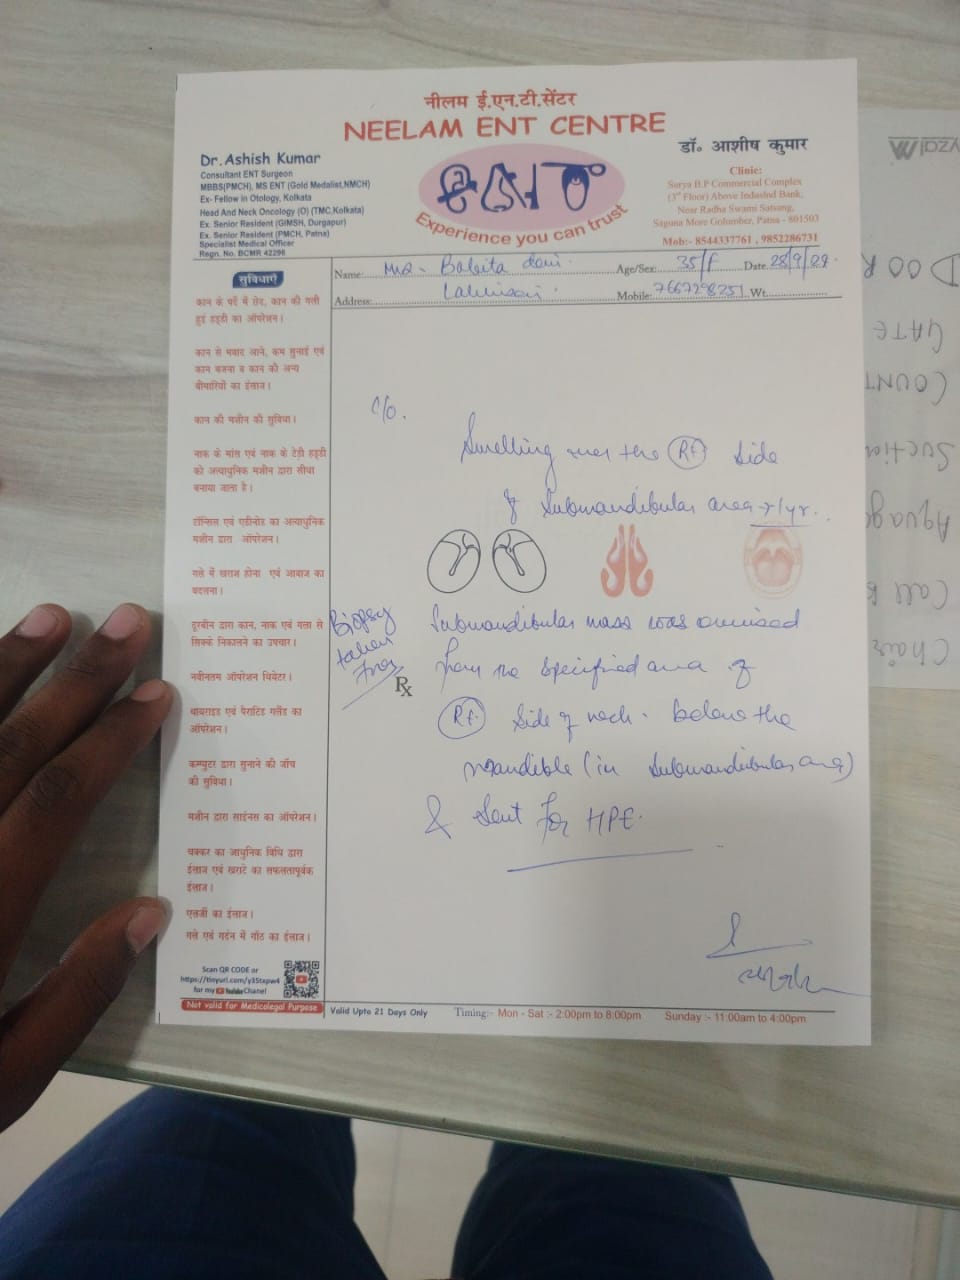 नीलम ई.एन.टी.सेंटर
NEELAM ENT CENTRE
Dr. Ashish Kumar
Consultant ENT Surgeon
MBBS(PMCH), MS ENT (Gold Medalist,NMCH)
Ex- Fellow in Otology, Kolkata
Head And Neck Oncology (O) (TMC,Kolkata)
Ex. Senior Resident (GIMSH, Durgapur)
Ex. Senior Resident (PMCH, Patna)
Specialist Medical Officer
Regn. No. BCMR 42296
Experience you can trust
डॉ॰ आशीष कुमार
Clinic:
Surya B.P Commercial Complex
(3rd Floor) Above IndusInd Bank,
Near Radha Swami Satsang,
Saguna More Golomber, Patna - 801503
Mob:- 8544337761 , 9852286731
Name: Babita Age/Sex: 35/f Date 28/9/24
Address: Mobile: 7667298251 Wt.
सुविधाएँ
कान के पर्दे में छेद, कान की गली
हुई हड्डी का ऑपरेशन।
कान से मवाद आने, कम सुनाई एवं
कान बजना व कान की अन्य
बीमारियों का ईलाज।
कान की मशीन की सुविधा।
नाक के मांस एवं नाक के टेढ़ी हड्डी
को अत्याधुनिक मशीन द्वारा सीधा
बनाया जाता है।
टॉन्सिल एवं एडीनोड का अत्याधुनिक
मशीन द्वारा ऑपरेशन।
गले में खराश होना एवं आवाज का
बदलना।
दूरबीन द्वारा कान, नाक एवं गला से
सिक्के निकालने का उपचार।
नवीनतम ऑपरेशन थियेटर।
थायराइड एवं पैराटिड गलैंड का
ऑपरेशन।
कम्प्युटर द्वारा सुनाने की जाँच
की सुविधा।
मशीन द्वारा साईनस का ऑपरेशन।
चक्कर का आधुनिक विधि द्वारा
ईलाज एवं खराटे का सफलतापूर्वक
ईलाज।
एलर्जी का ईलाज।
गले एवं गर्दन में गाँठ का ईलाज।
Scan QR CODE or
https://tinyurl.com/y35txpw4
for my YouTube Chanel
Not valid for Medicolegal Purpose
c/o.
Swelling over the Rt side
of Submandibular area 1yr.
Biopsy
taken
from
Rx
Submandibular mass was excised
from the specified area of
Rt. Side of neck. below the
mandible (in submandibular area)
& Sent for HPE.
Valid Upto 21 Days Only
Timing:- Mon - Sat :- 2:00pm to 8:00pm
Sunday :- 11:00am to 4:00pm
DOOR
GATE
COUNT
Suction
Aquag
Call B
Chair